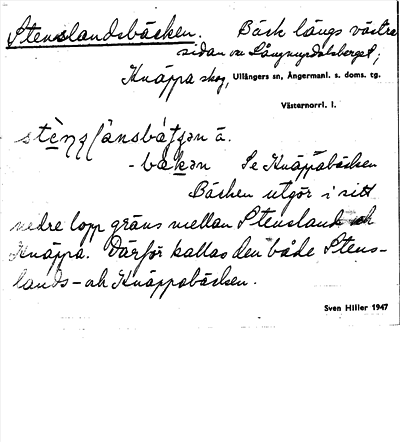 Stenslandsbäcken. Bäck längs västra
sidan av Långmyrdalsberget,
Knäppa skog, Ullångers sn, Ångermanl. s. doms. tg.
Västernorrl. l.
- båkən Se Knäppabäcken
Bäcken utgör i sitt
nedre lopp gräns mellan Stensland och
Knäppa. Därför kallas den både Stens-
lands- och Knäppabäcken.
Sven Hiller 1947